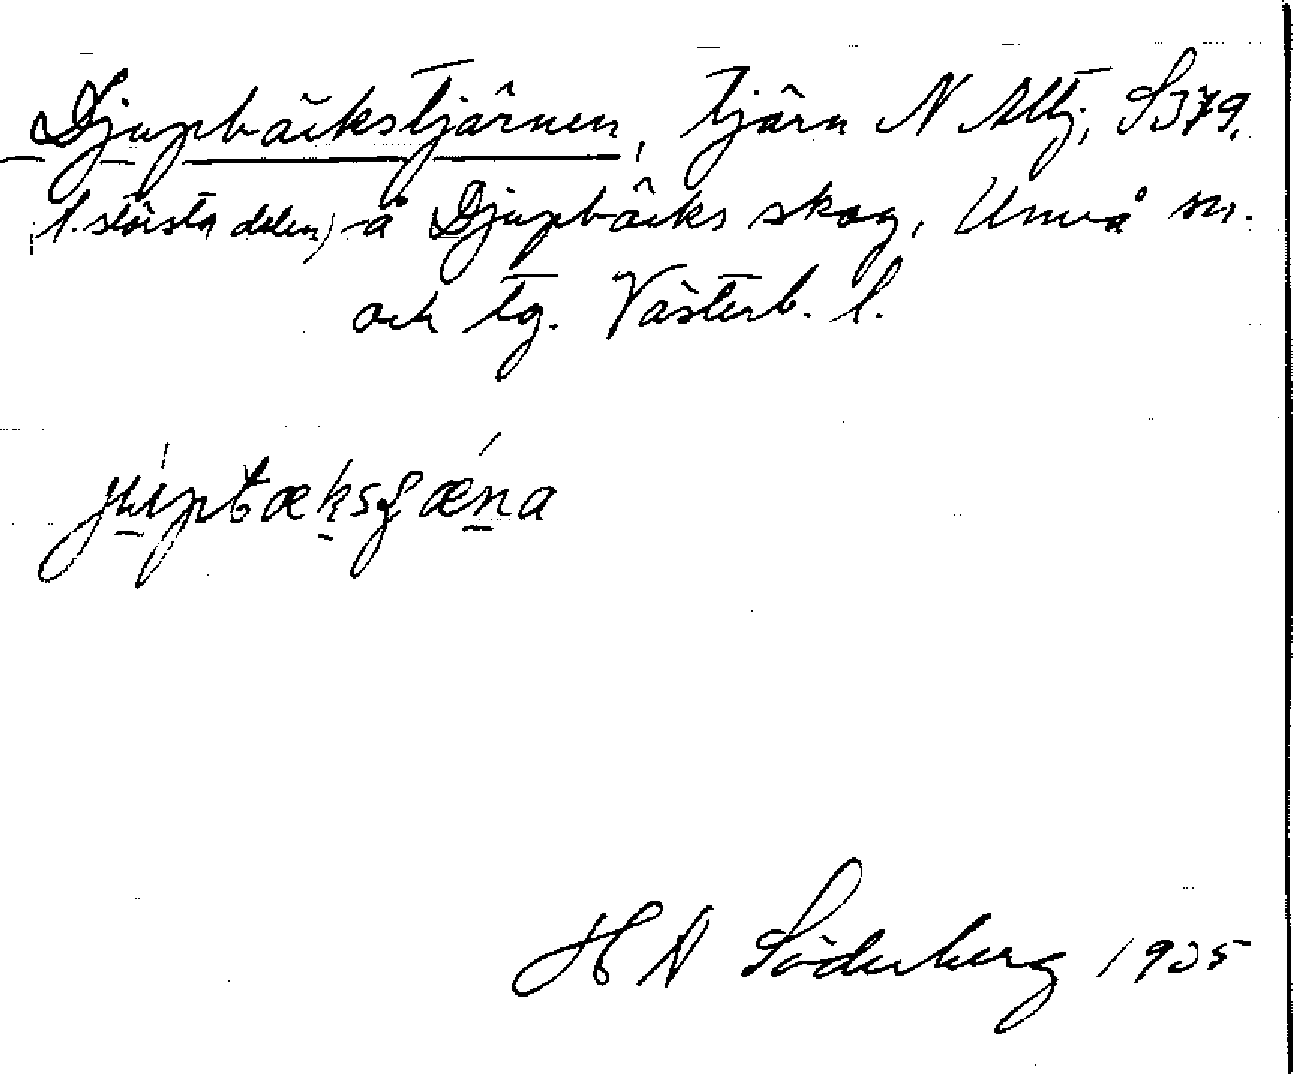 Djupbäckstjärnen, tjärn N Altj, S379,
(t. största delen) å Djupbäcks skog, Umeå sn.
och tg. Västerb. l.
H A Söderberg 1935